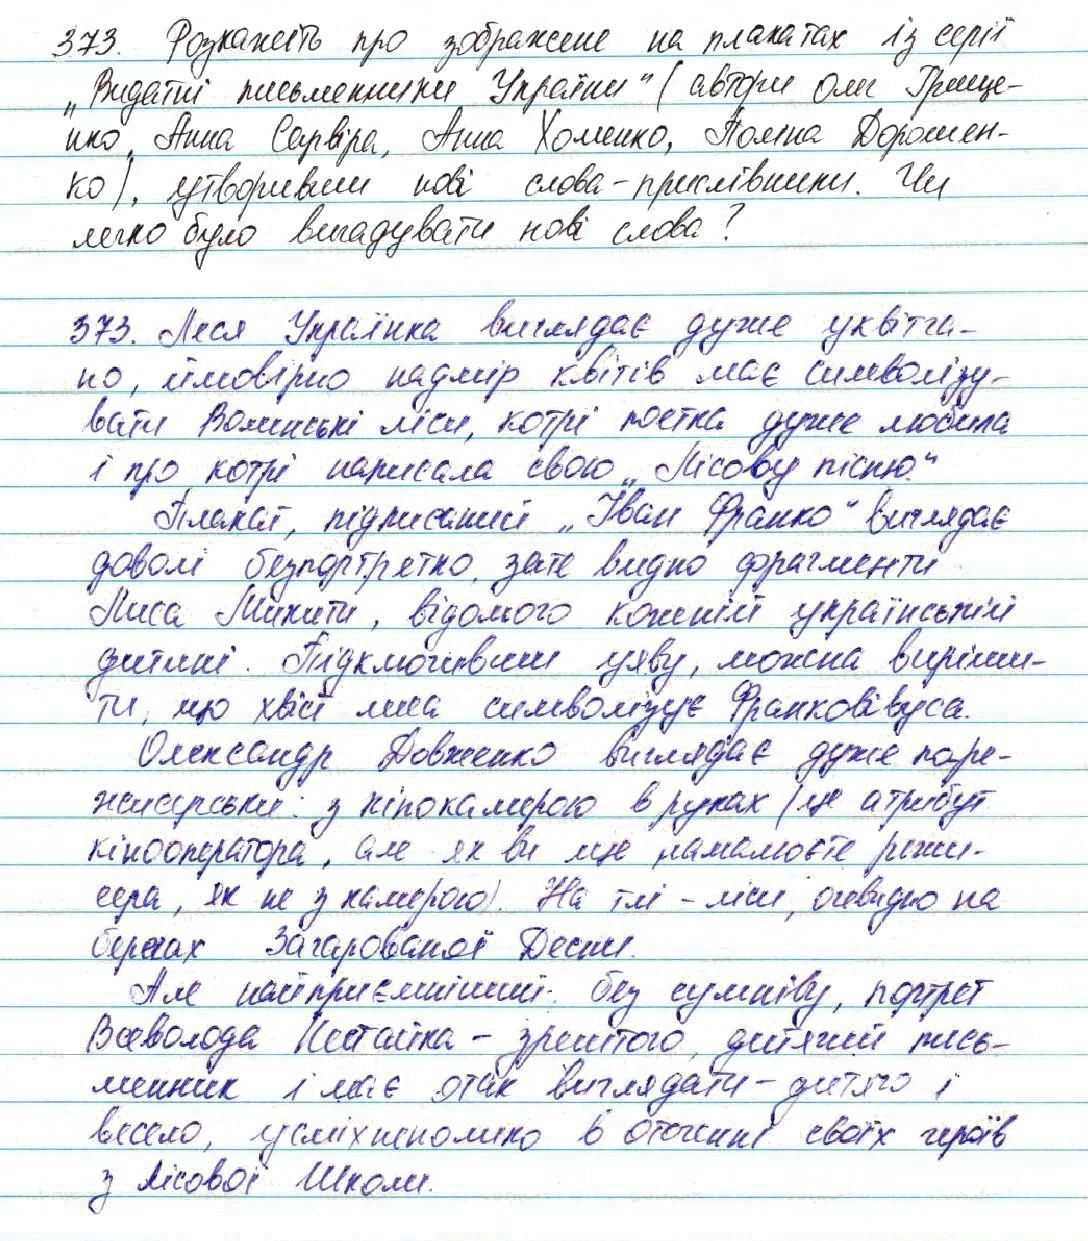 373. Розкажіть про зображене на плакатах із серії
„Видатні письменники України“ (автори Олег Грище-
нко, Анна Сарвіра, Анна Хоменко, Поліна Дорошен-
ко), утворивши нові слова-прислівники. Чи
легко було вигадувати нові слова?
373. Леся Українка виглядає дуже уквітча-
но, ймовірно надмір квітів має символізу-
вати Волинські ліси, котрі поетка дуже любила
і про котрі написала свою „Лісову пісню“
Плакат, підписаний „Іван Франко“ виглядає
доволі безпортретно, зате видно фрагменти
Лиса Микити, відомого кожній українській
дитині. Підключивши уяву, можна виріши-
ти, що хвіст лиса символізує Франкові вуса.
Олександр Довженко виглядає дуже поре-
жисерськи: з кінокамерою в руках (це атрибут
кінооператора, але як ви ще намалюєте режи-
сера, як не з камерою). На тлі - ліси, очевидно на
берегах Зачарованої Десни.
Але найприємніший, без сумніву, портрет
Всеволода Нестайка - зрештою, дитячий пись-
менник і має отак виглядати - дитячо і
весело, усміхненолико в оточенні своїх героїв
з Лісової Школи.